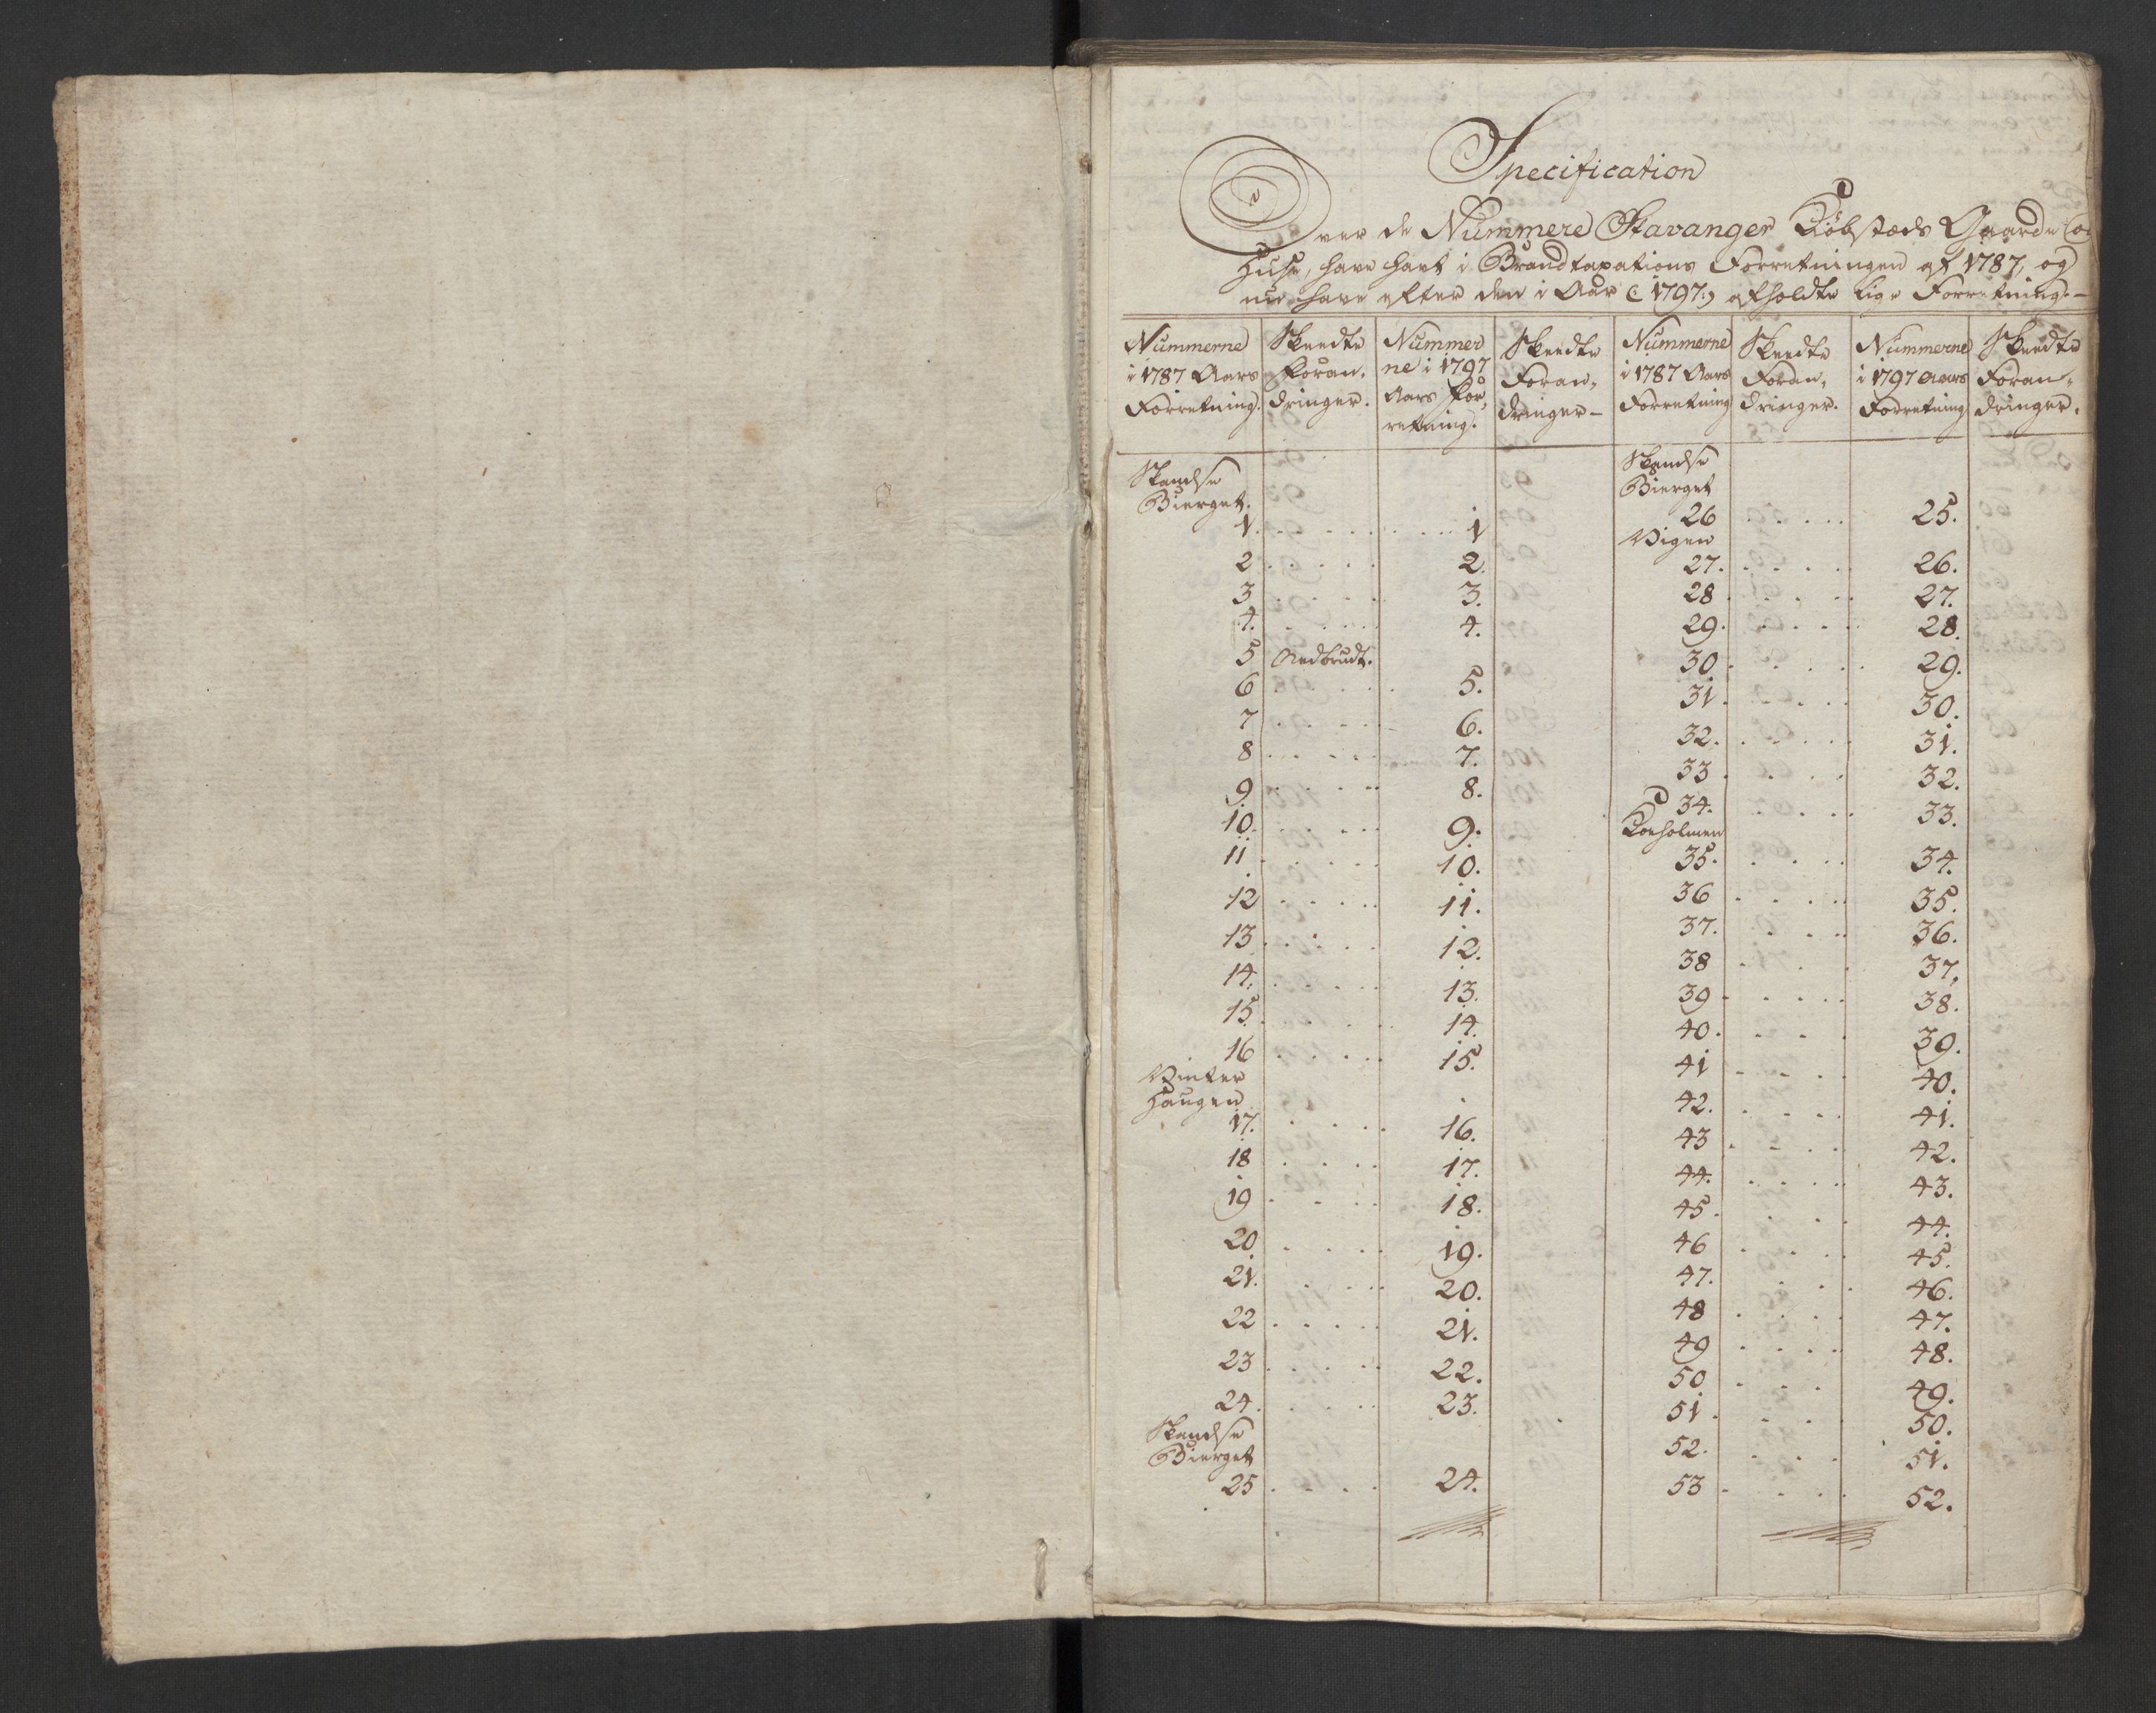 Specification
Over de Nummere Stavanger Kiöbstæds Gaarde og
Huse, have havt i Brandtaxations Forretningen af 1787, og
nu have efter den i Aar (: 1797:) afholdte lige Forretning. –
Nummerne i 1787 Aars Forretning. | Skeedte Foran, dringer. | Nummer ne i 1797 Aars For, retning. | Skeedte Foran, dringer – | Nummerne i 1787 Aars Forretning | Skeedte Foran, dringer. | Nummerne i 1797 Aars Forretning | Skeedte Foran, dringer.
Skandse
Bierget.
1. . . . . . . . 1
2 . . . . . 2.
3 . . . . 3.
4. . . . . 4.
5 Nedbrudt.
6 . . . . . 5.
7 . . . . . 6.
8 . . . . . 7.
9. . . . . 8.
10. . . . . 9.
11 . . . . . 10.
12 . . . . . 11.
13 . . . . . 12.
14. . . . . 13.
15. . . . . 14.
16 . . . . . 15.
Vinter
Haugen
17. . . . . 16.
18 . . . . 17.
19 . . . . 18.
20. . . . . 19.
21. . . . . 20.
22 . . . . . 21.
23 . . . . . 22.
24. . . . . 23.
Skandse
Bierget
25 . . . . 24.
Skandse
Bierget
26 . . . . . 25.
Vigen
27. . . . . 26.
28 . . . . 27.
29. . . . . 28.
30 . . . . . 29.
31 . . . . . 30.
32. . . . . 31.
33 . . . . 32.
34. . . . . 33.
Koeholmen
35. . . . . 34.
36 . . . . . 35.
37. . . . . 36.
38 . . . . 37.
39 . . . . . 38.
40. . . . . 39.
41 . . . . 40.
42. . . . . 41.
43 . . . . 42.
44. . . . . 43.
45. . . . . 44.
46 . . . . 45.
47. . . . 46.
48 . . . . 47.
49 . . . . 48.
50 . . . . 49.
51 . . . . 50.
52. . . . 51.
53 . . . . 52.